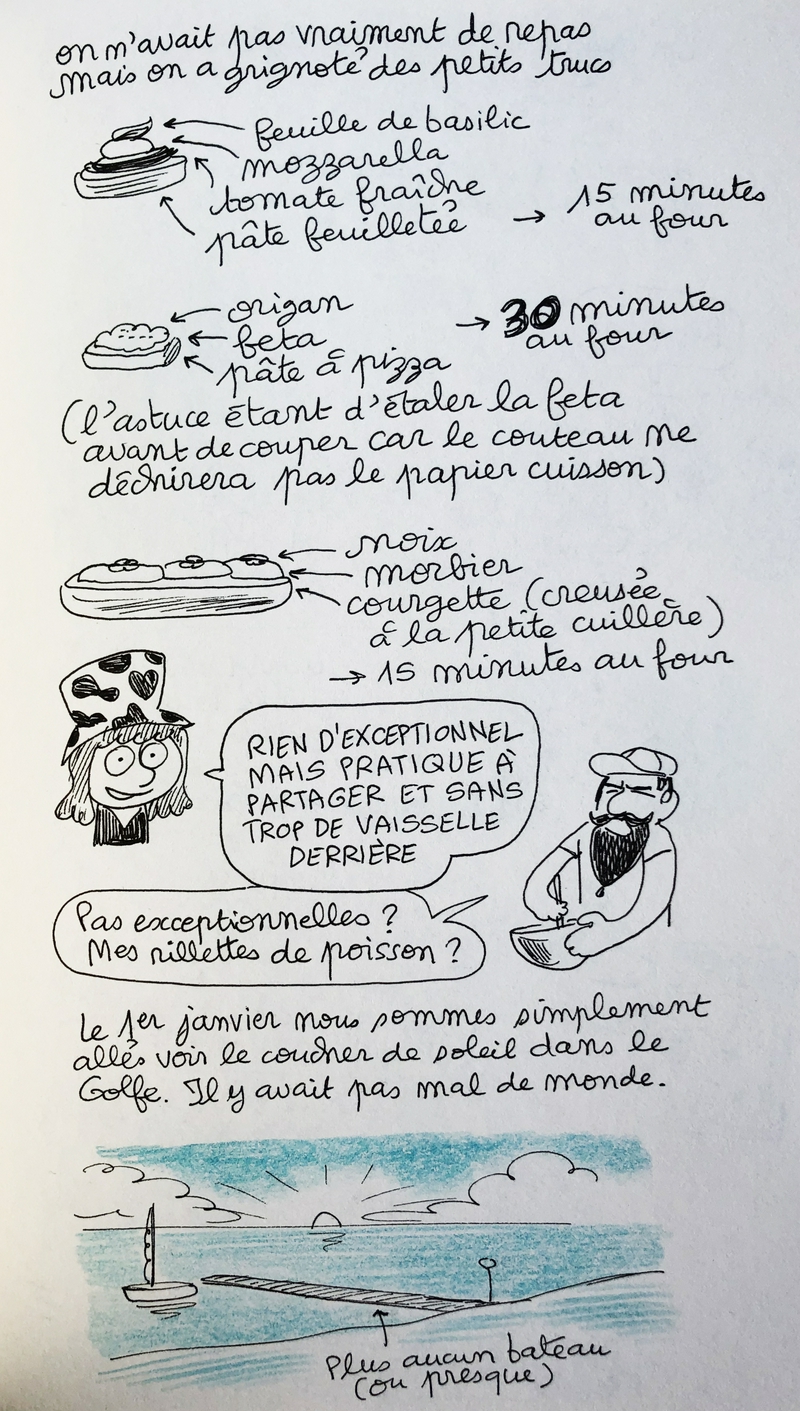 on n'avait pas vraiment de repas
mais on a grignoté des petits trucs
feuille de basilic
mozzarella
tomate fraîche
pâte feuilletée → 15 minutes
au four
origan
feta
pâte à pizza
→ 30 minutes
au four
(l'astuce étant d'étaler la feta
avant de couper car le couteau ne
déchirera pas le papier cuisson)
noix
morbier
courgette (creusée
à la petite cuillère)
→ 15 minutes au four
RIEN D'EXCEPTIONNEL
MAIS PRATIQUE À
PARTAGER ET SANS
TROP DE VAISSELLE
DERRIÈRE
Pas exceptionnelles ?
Mes rillettes de poisson ?
Le 1er janvier nous sommes simplement
allés voir le coucher de soleil dans le
Golfe. Il y avait pas mal de monde.
Plus aucun bateau
(ou presque)